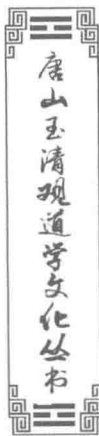 唐山玉清观道学文化丛书